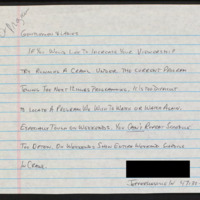 Gentlemen & Ladies
If You Would Like To Increase Your Viewership
Try Running A Crawl Under The Current Program
Giving The Next Programming. It Is Too Difficult
To Locate A Program We Wish To Watch or Watch Again.
Especially Tough On Weekends. You Can't Repeat Schedule
Too Often On Weekends Show Entire Weekend Schedule
In Crawl